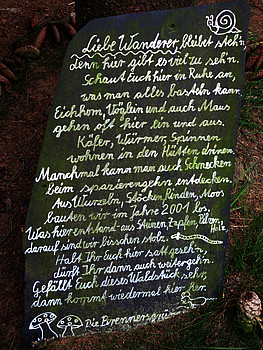 Liebe Wanderer, bleibet steh'n
denn hier gibt es viel zu seh'n.
Schaut Euch hier in Ruhe an,
was man alles basteln kann.
Eichhorn, Vöglein und auch Maus
gehen oft hier ein und aus.
Käfer, Würmer, Spinnen
wohnen in den Hütten drinnen.
Manchmal kann man auch Schnecken
beim spazierengehn entdecken.
Aus Wurzeln, Stöcken, Rinden, Moos
bauten wir im Jahre 2001 los.
Was hier entstand aus Steinen, Zapfen, Pilzen, Holz,
darauf sind wir bisschen stolz.
Habt Ihr Euch hier satt gesehn,
dürft Ihr dann auch weitergehn.
Gefällt Euch dieses Waldstück sehr,
dann kommt wiedermal hier her.
Die